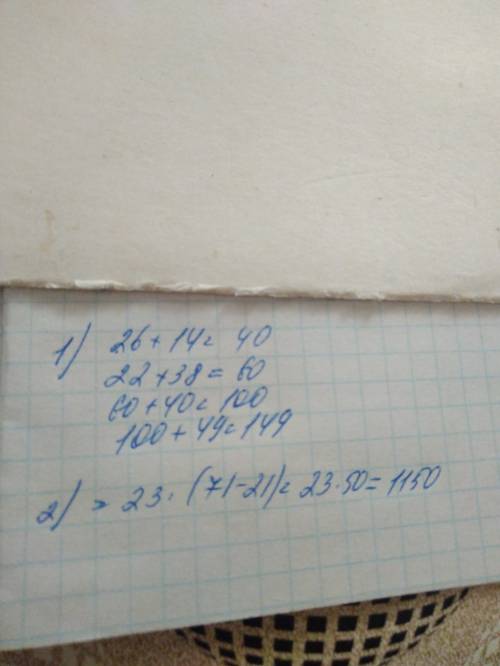 1) 26 + 14 = 40
22 + 38 = 60
60 + 40 = 100
100 + 49 = 149
2) = 23 · (71 - 21) = 23 · 50 = 1150